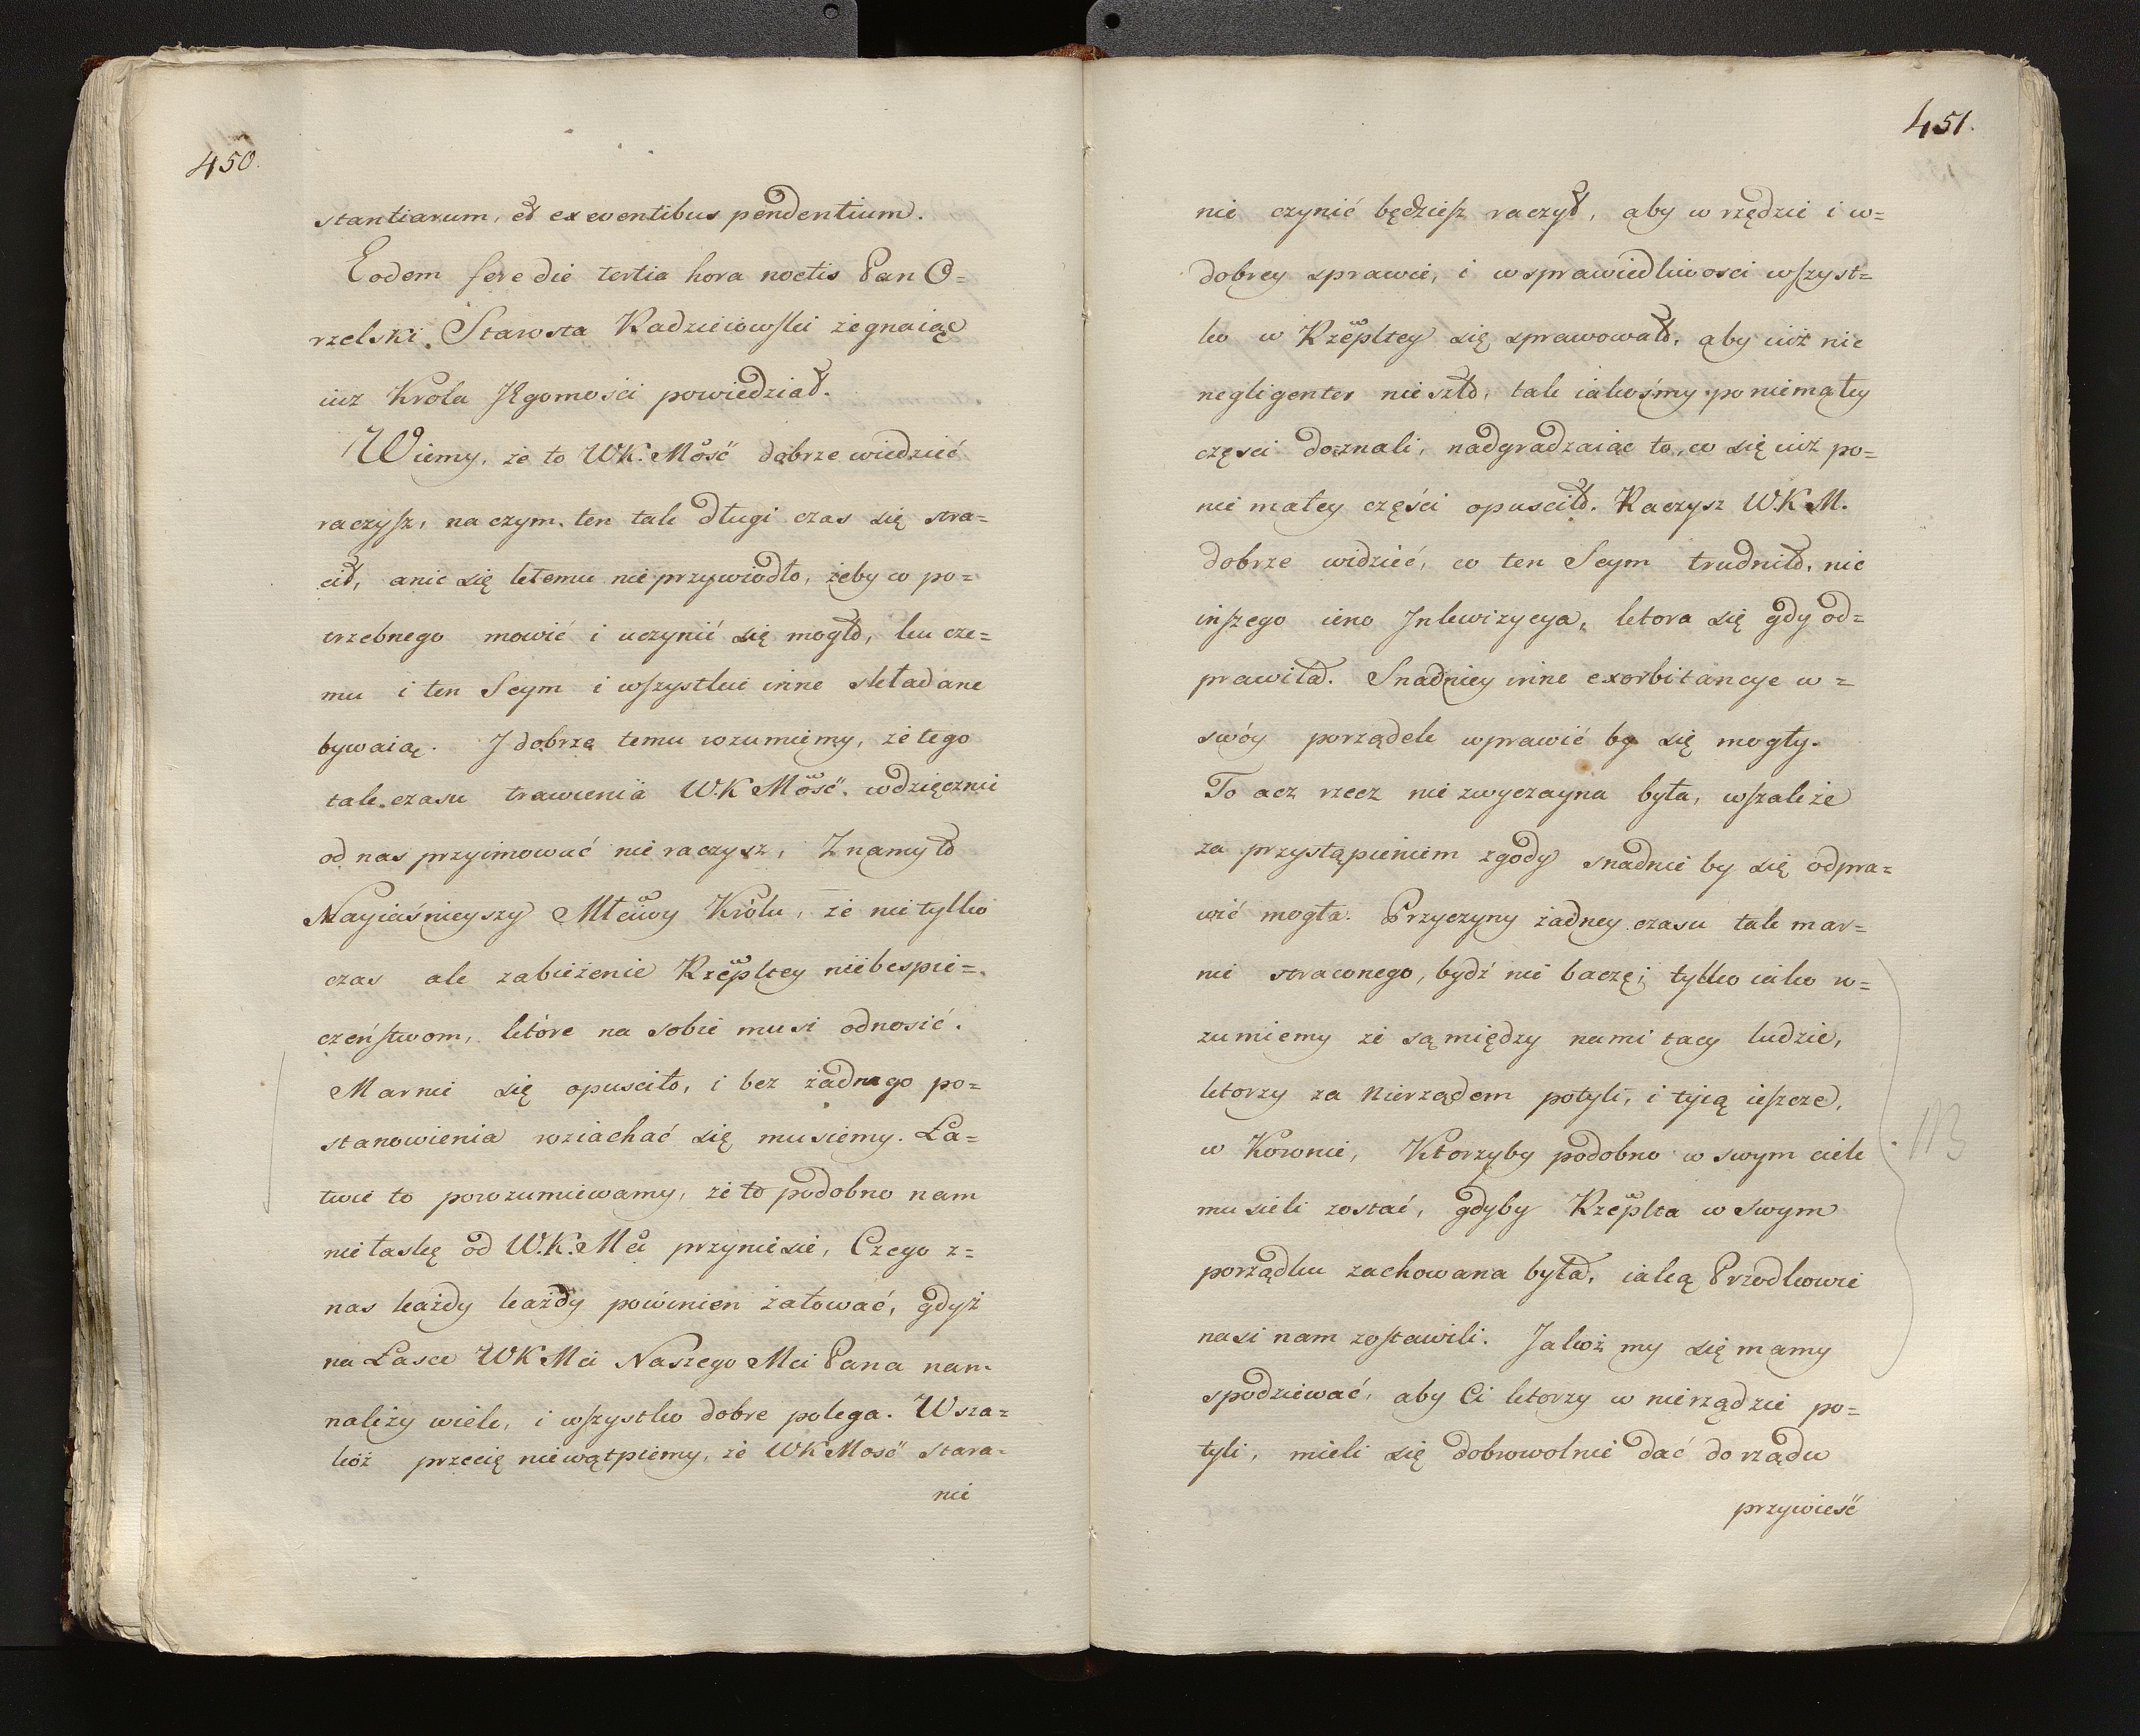 450.
stantiarum, et ex eventibus pendentium.
Eodem fere die tertia hora noctis Pan O=
rzelski Starosta Radzieiowski żegnaiąc
iuż Krola JEgomości powiedział.
Wiemy, że to WK. Mość dobrze wiedzieć
raczysz, na czym ten tak długi czas się stra=
cił, a nic się k temu nie przywiodło, żeby co po=
trzebnego mowić i uczynić się mogło, ku cze=
mu i ten Seym i wszystkie inne składane
bywaią. J dobrze temu rozumiemy, że tego
tak czasu trawienia W.K Mość wdzięcznie
od nas przyimować nie raczysz, Znamy to
Nayiaśnieyszy Młciwy Królu, że nie tylko
czas ale zabieżenie Rzepltey niebespie=
czeństwom, które na sobie musi odnosić.
Marnie się opusciło, i bez żadnego po=
stanowienia roziachać się musiemy. Ła=
twie to porozumiewamy, że to podobno nam
niełaskę od W.K. Mci przyniesie, Czego z=
nas każdy każdy powinien żałować, gdyż
na Łasce WK Mci Naszego Mci Pana nam
należy wiele, i wszystko dobre polega. Wsza=
kóż przecię niewątpiemy, że WK Mość stara=
nie
451.
nie czynić będziesz raczył, aby w rzędzie i w=
dobrey sprawie, i w sprawiedliwosci wszyst=
ko w Rzepltey się sprawowało, aby iuż nic
negligenter nie szło, tak iakośmy po niemałey
częsci doznali, nadgradzaiąc to, co się iuż po=
nie małey części opusciło. Raczysz W.K M.
dobrze widzieć, co ten Seym trudniło, nic
inszego ieno Jnkwizycya, ktora się gdy od=
prawiła. Snadniey inne exorbitancye w=
swóy porządek wprawić by się mogły.
To acz rzecz nie zwyczayna była, wszakże
za przystąpieniem zgody snadnie by się odpra=
wić mogła. Przyczyny żadney czasu tak mar=
nie straconego, bydź nie baczę; tylko iako ro=
zumiemy że są między nami tacy ludzie,
ktorzy za Nierządem potyli, i tyią ieszcze,
w Koronie, Ktorzyby podobno w swym ciele
musieli zostać, gdyby Rzeplta w swym
porządku zachowana była, iaką Przodkowie
nasi nam zostawili. Jakoż my się mamy
spodziewać, aby Ci ktorzy w nierządzie po=
tyli, mieli się dobrowolnie dać do rządu
przywieść
113